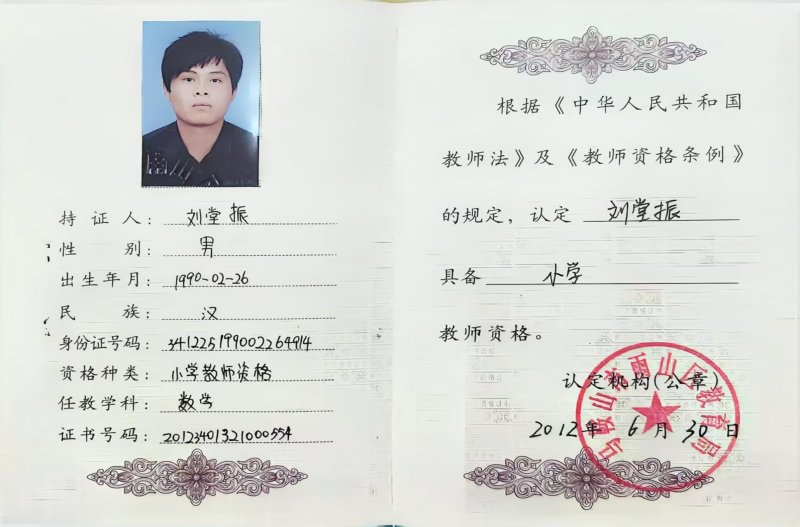 持证人：刘堂振
性别：男
出生年月：1990-02-26
民族：汉
身份证号码：341225199002264914
资格种类：小学教师资格
任教学科：数学
证书号码：20123401321000554
根据《中华人民共和国
教师法》及《教师资格条例》
的规定，认定 刘堂振
具备 小学
教师资格。
认定机构(公章)
2012年 6月 30日
马鞍山市雨山区教育局